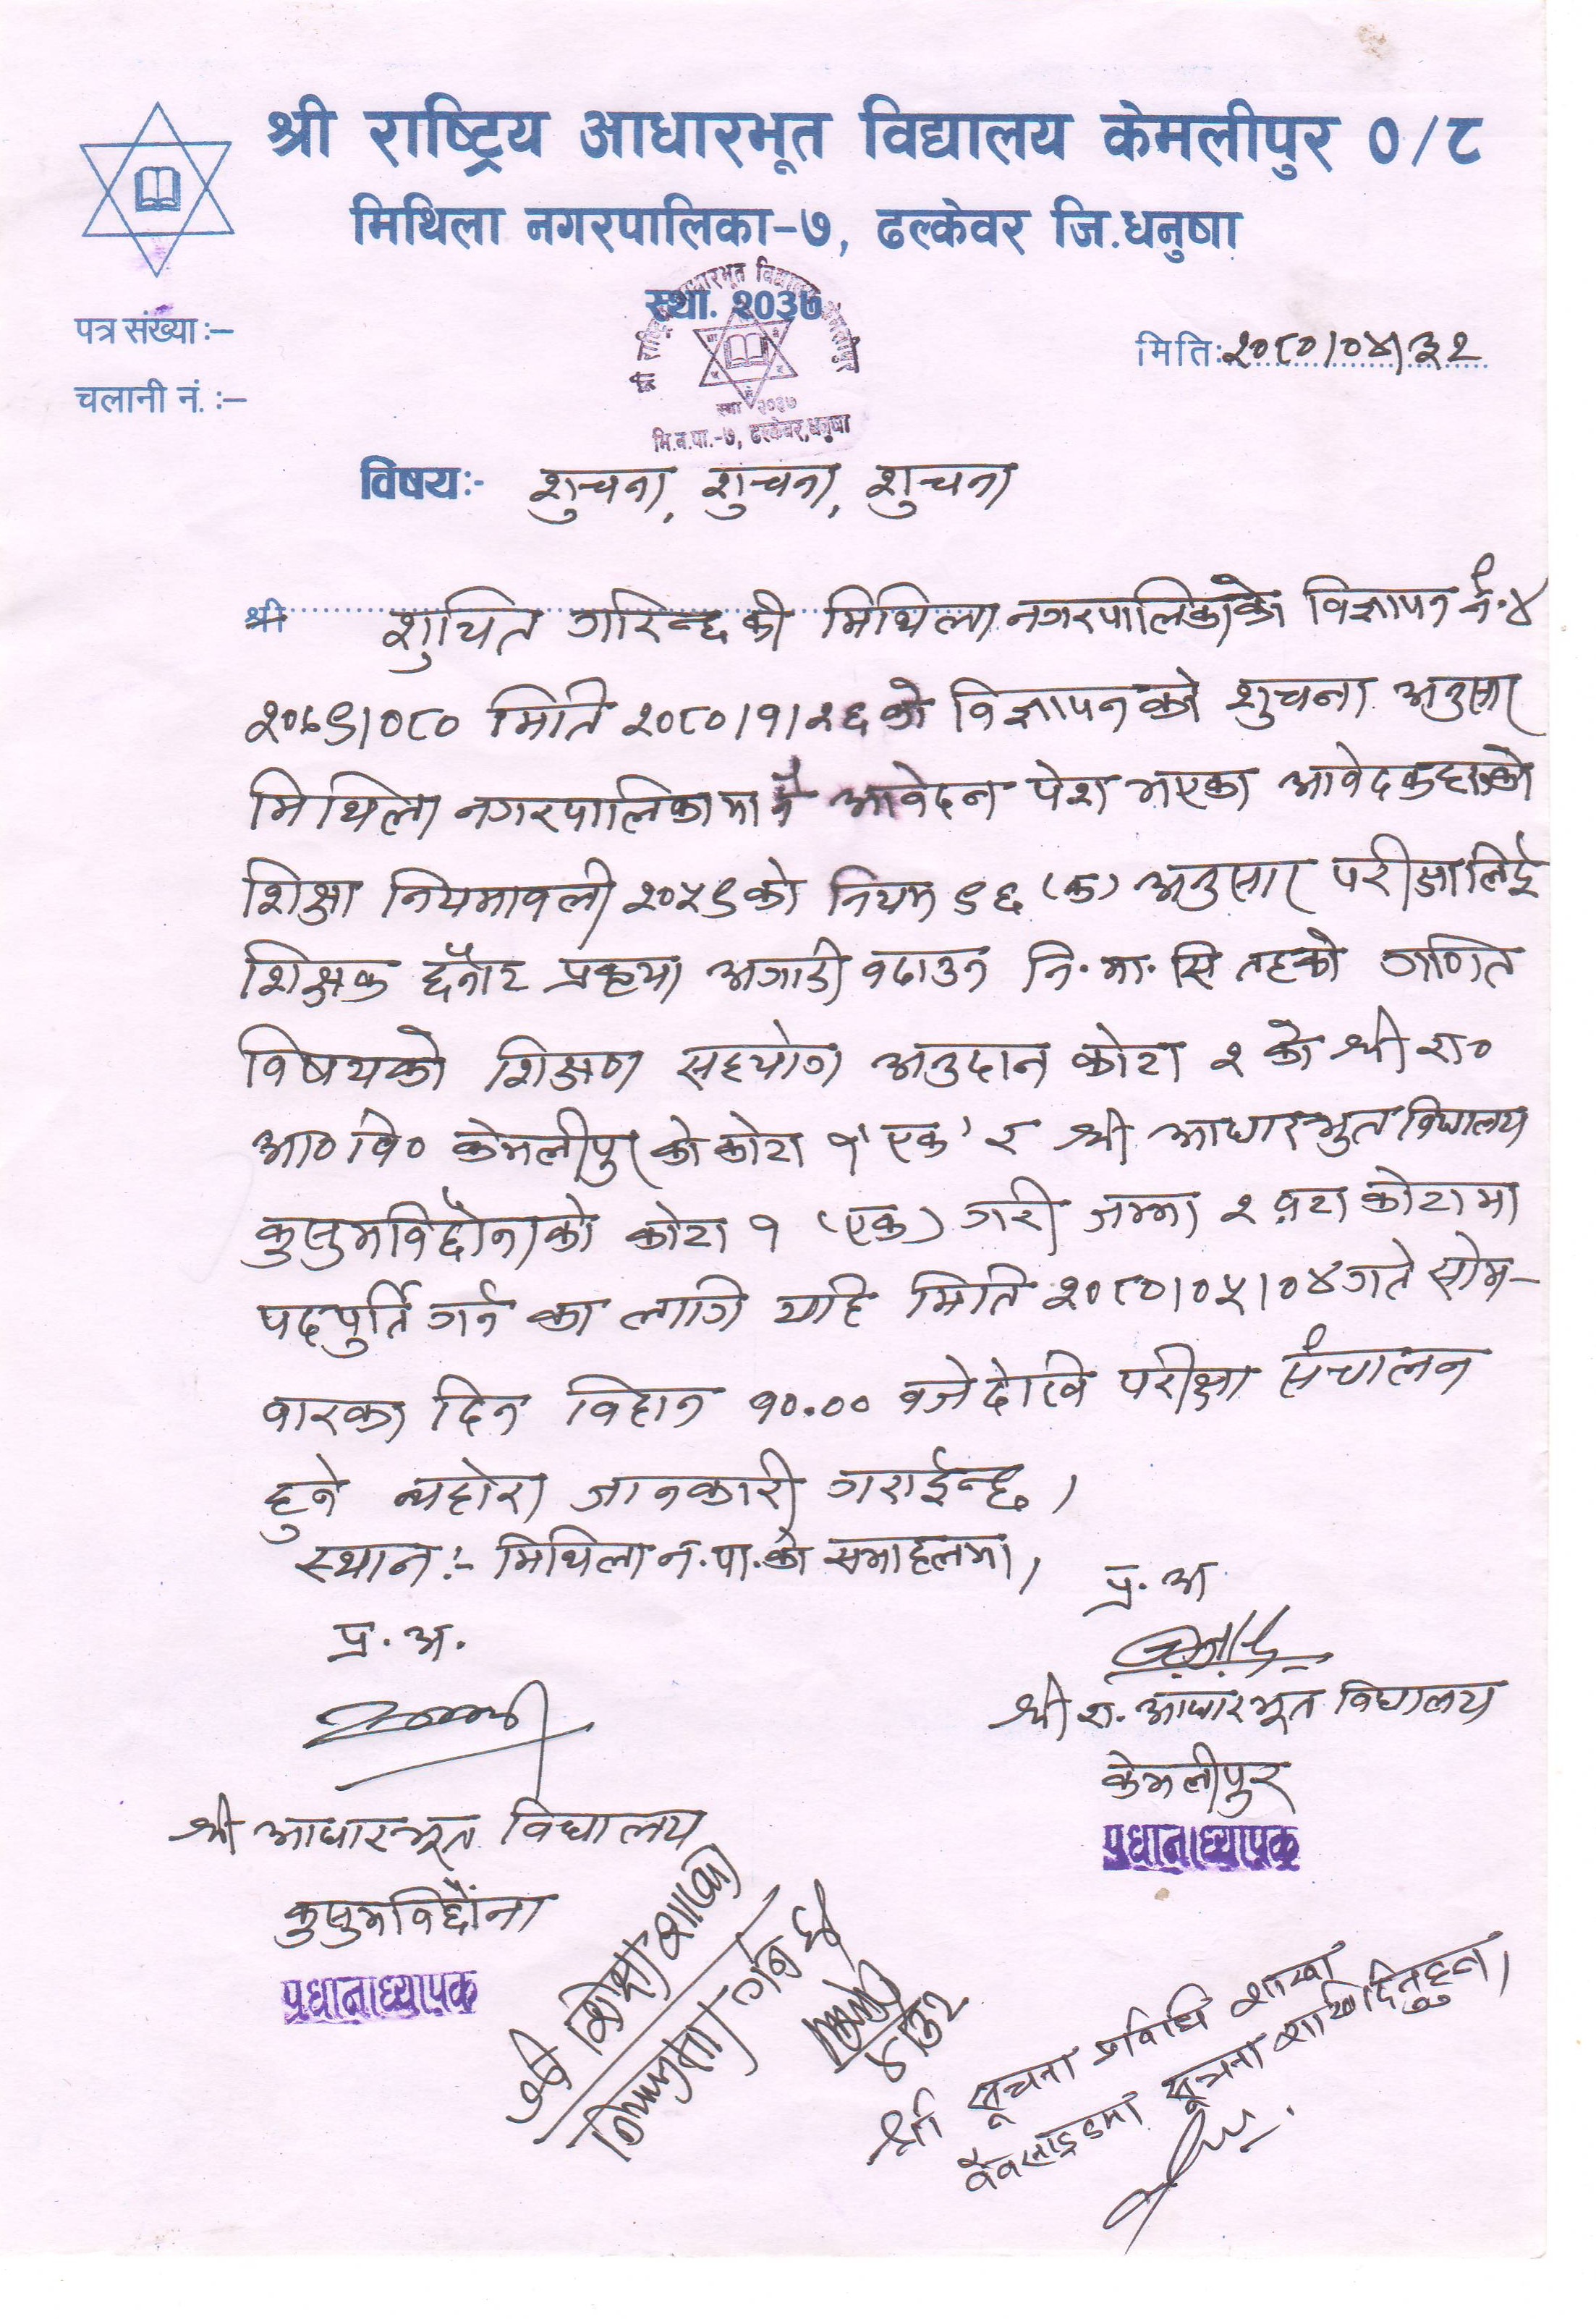 श्री राष्ट्रिय आधारभूत विद्यालय केमलीपुर ०/८
मिथिला नगरपालिका-७, ढल्केवर जि.धनुषा
स्था. २०३७
पत्र संख्या :–
मिति: २०८०।०४।३२
चलानी नं. :–
स्था २०३७
मि.न.पा.-७, ढल्केवर, धनुषा
विषय:- शुचना, शुचना, शुचना
श्री शुचित गरिन्छ की मिथिला नगरपालिकाको विज्ञापन नं.४
२०७९।०८० मिति २०८०।१।२६ को विज्ञापनको शुचना अनुसार
मिथिला नगरपालिकामा नै आवेदन पेश भएका आवेदकहरुको
शिक्षा नियमावली २०५९को नियम ९६ (क) अनुसार परीक्षा लिई
शिक्षक छनौट प्रकृया अगाडी वढाउन नि.मा.सि तहको गणित
विषयको शिक्षण सहयोग अनुदान कोटा २ को श्री रा०
आ० वि० केमलीपुर को कोटा १ 'एक' र श्री आधारभुत विघालय
कुसुमविछौनाको कोटा १ (एक) गरी जम्मा २ वटा कोटामा
पदपुर्ति गर्न का लागि यहि मिति २०८०।०५।०४ गते सोम–
वारका दिन विहान १०.०० वजे देखि परीक्षा संचालन
हुने व्यहोरा जानकारी गराईन्छ।
स्थान :- मिथिला न.पा.को सभाहलमा।
प्र. अ
प्र. अ.
श्री रा. आधारभूत विघालय
केमलीपुर
प्रधानाध्यापक
श्री आधारभूत विघालय
कुसुमविछौंना
प्रधानाध्यापक
श्री शिक्षा शाखा
श्री सूचना प्रविधि शाखा
वेवसाइडमा सूचना राखिदिनुहुन।